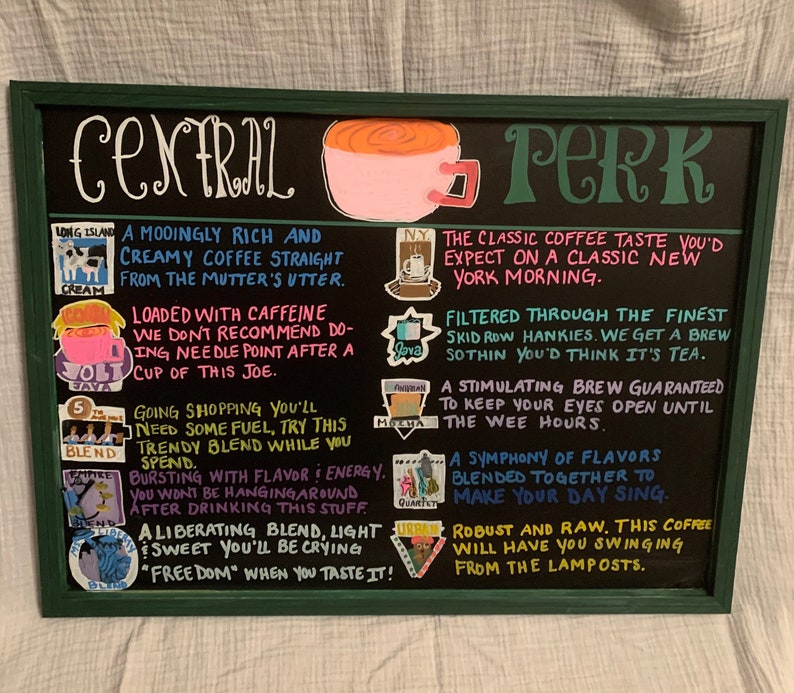 CENTRAL PERK
LONG ISLAND
CREAM
A MOOINGLY RICH AND
CREAMY COFFEE STRAIGHT
FROM THE MUTTER'S UTTER.
JOLT
JAVA
LOADED WITH CAFFEINE
WE DON'T RECOMMEND DO-
ING NEEDLE POINT AFTER A
CUP OF THIS JOE.
5TH AVENUE
BLEND
GOING SHOPPING YOU'LL
NEED SOME FUEL, TRY THIS
TRENDY BLEND WHILE YOU
SPEND.
EMPIRE
BLEND
BURSTING WITH FLAVOR & ENERGY.
YOU WONT BE HANGING AROUND
AFTER DRINKING THIS STUFF.
LIBERTY
BLEND
A LIBERATING BLEND, LIGHT
& SWEET YOU'LL BE CRYING
"FREEDOM" WHEN YOU TASTE IT!
N.Y.
THE CLASSIC COFFEE TASTE YOU'D
EXPECT ON A CLASSIC NEW
YORK MORNING.
Java
FILTERED THROUGH THE FINEST
SKID ROW HANKIES. WE GET A BREW
SOTHIN YOU'D THINK IT'S TEA.
MOCHA
A STIMULATING BREW GUARANTEED
TO KEEP YOUR EYES OPEN UNTIL
THE WEE HOURS.
QUARTET
A SYMPHONY OF FLAVORS
BLENDED TOGETHER TO
MAKE YOUR DAY SING.
URBAN
ROBUST AND RAW. THIS COFFEE
WILL HAVE YOU SWINGING
FROM THE LAMPOSTS.